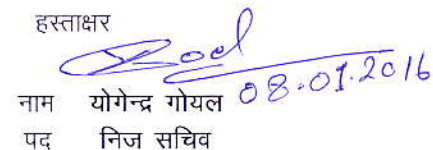 हस्ताक्षर
08.01.2016
नाम योगेन्द्र गोयल
पद निज सचिव